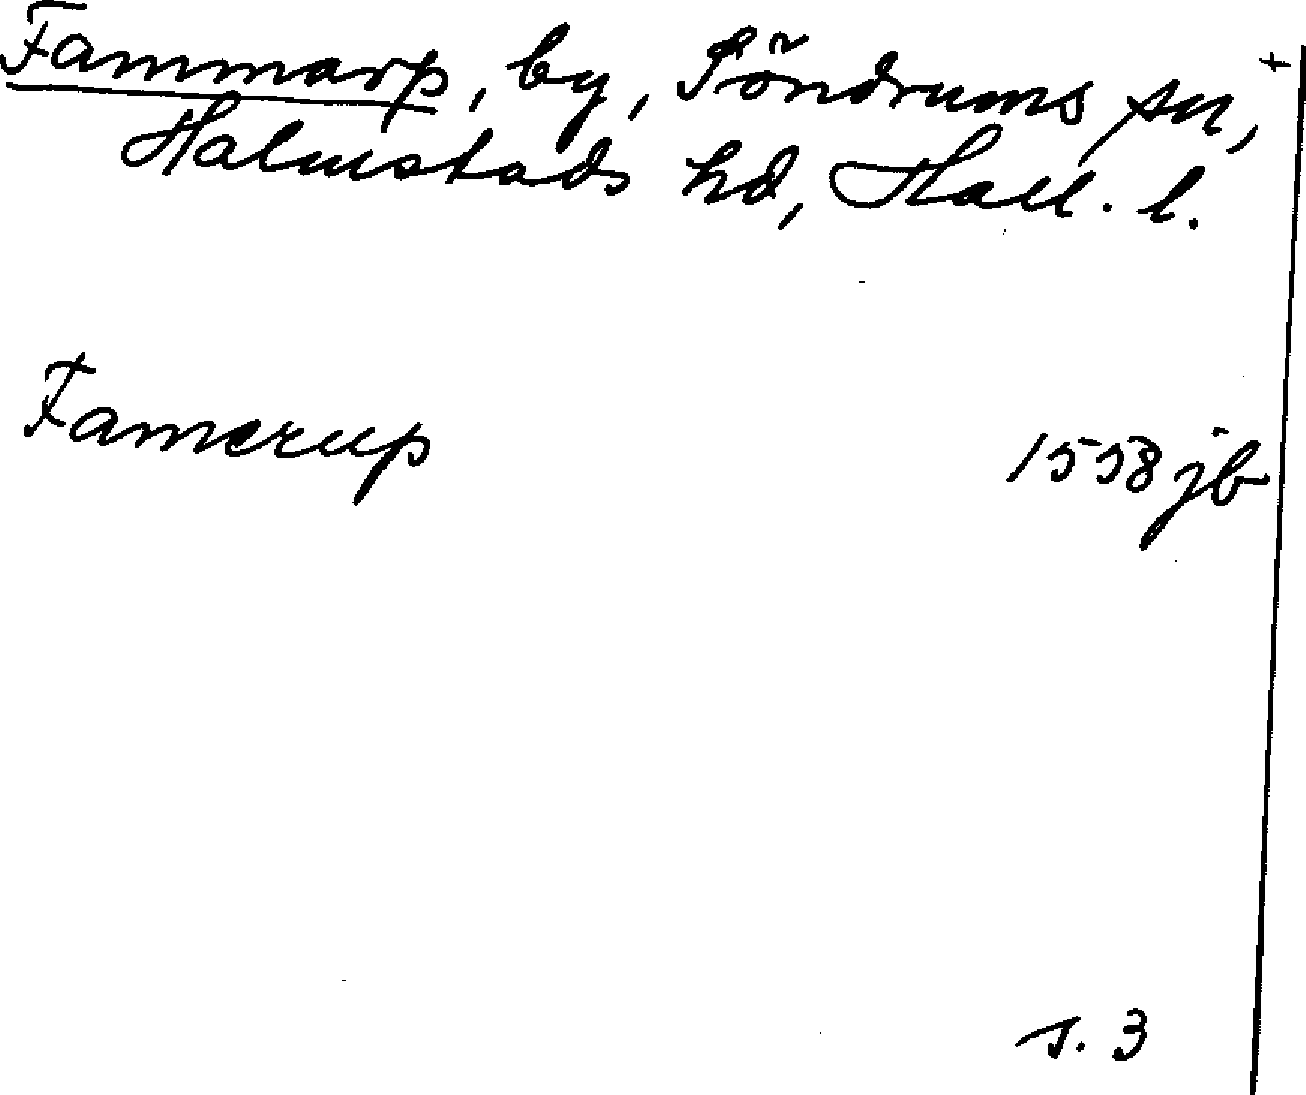 Fammarp, by, Söndrums sn, +
Halmstads hd, Hall. l.
Famerup 1558 jb
s. 3